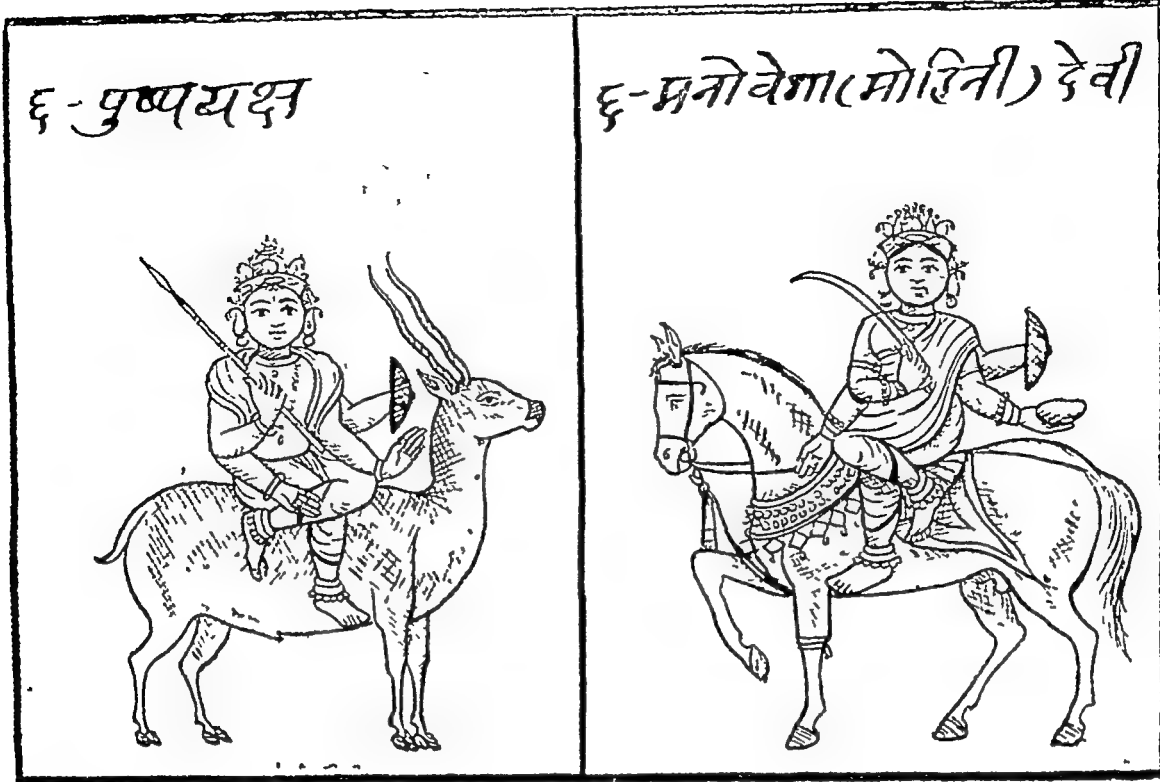 ६-पुष्पयक्ष
६-मनोवेगा(मोहिनी)देवी